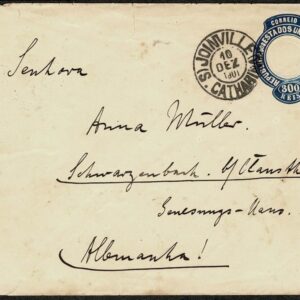 CORREIO
REPUBLICA DOS ESTADOS U
300
REIS
JOINVILLE
10
DEZ
1901
S. CATHARI
Senhora
Anna Müller.
Schwarzenbach b/Clausth
Genesungs-Haus.
Allemanha!